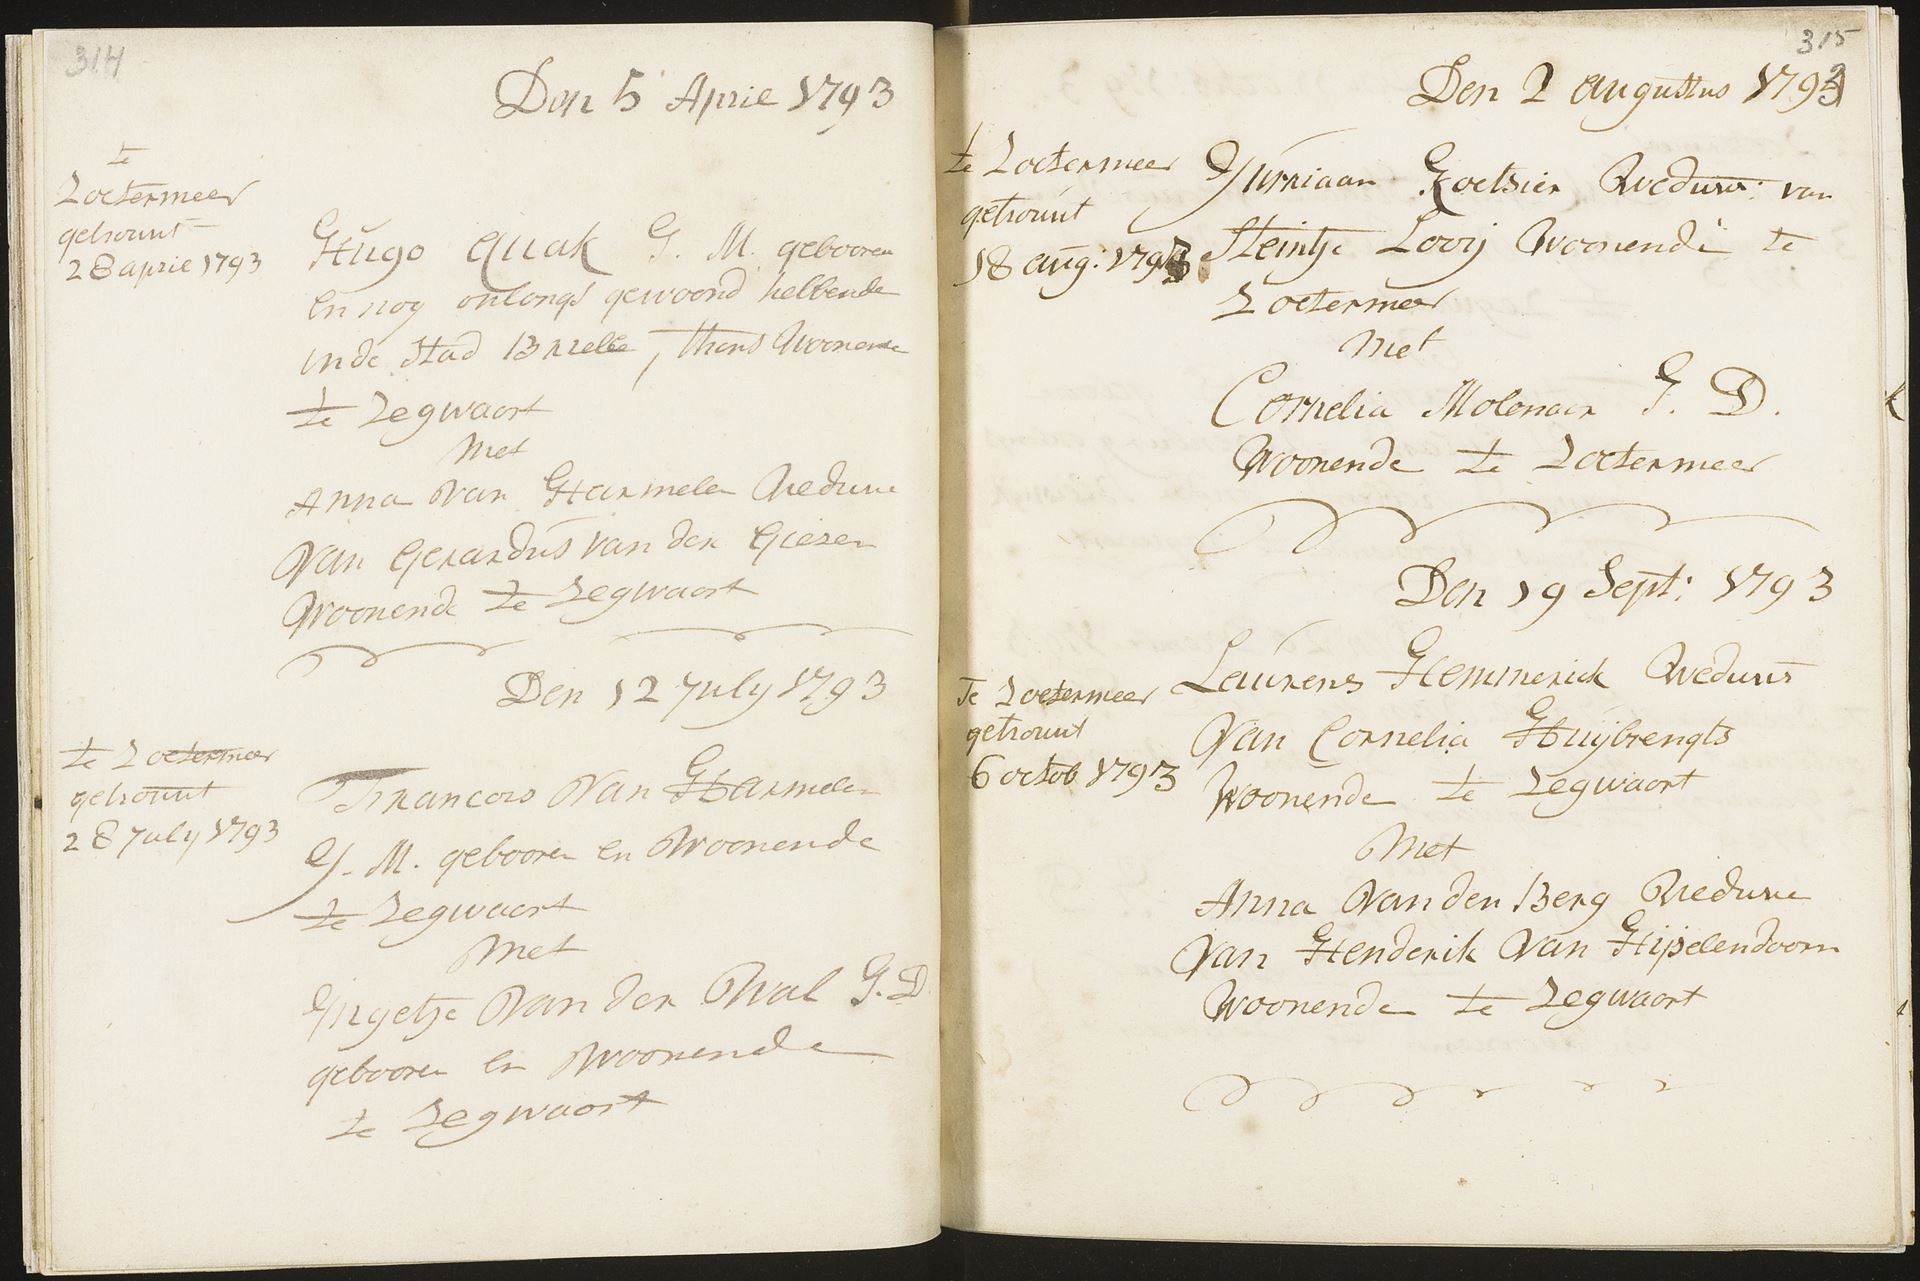 314
Den 5 Aprie 1793
te
Zoetermeer
getrouwt
28 aprie 1793
Hugo Quak J. M. gebooren
en nog onlangs gewoond hebbende
in de Stad Brielle, thans Woonende
te Zegwaart
Met
Anna van Harmelen Weduwe
Van Gerardus van der Giesen
Woonende te Zegwaart
Den 12 July 1793
te Zoetermeer
getrouwt
28 July 1793
Francois Van Harmelen
J. M. gebooren en Woonende
te Zegwaart
Met
Ingetje Van der Wal J. D.
gebooren en Woonende
te Zegwaart
315
Den 2 augustus 1793
te Zoetermeer
getrouwt
18 aug: 1793
Jurriaan Koetsier Weduwr: van
Steintje Looij Woonende te
Zoetermeer
Met
Cornelia Molenaar J. D.
Woonende te Zoetermeer
Den 19 Sept: 1793
Te Zoetermeer
getrouwt
6 octob 1793
Laurens Hemmerick Weduwr
Van Cornelia Huijbregts
Woonende te Zegwaart
Met
Anna Van den Berg Weduwe
Van Henderik Van Hijselendoorn
Woonende te Zegwaart